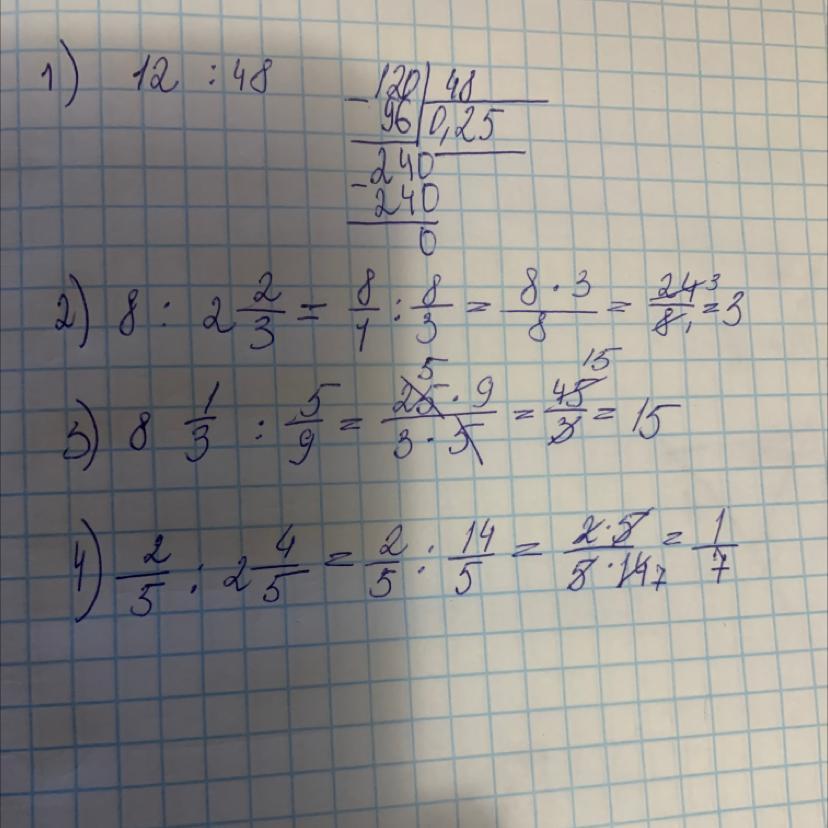 1) 12 : 48
120 | 48
- 96 | 0,25
240
- 240
0
2) 8 : 2 2/3 = 8/1 : 8/3 = 8 · 3 / 8 = 24 3 / 8 1 = 3
3) 8 1/3 : 5/9 = 25 5 · 9 / 3 · 5 = 45 15 / 3 = 15
4) 2/5 : 2 4/5 = 2/5 : 14/5 = 2 · 5 / 5 · 14 7 = 1/7